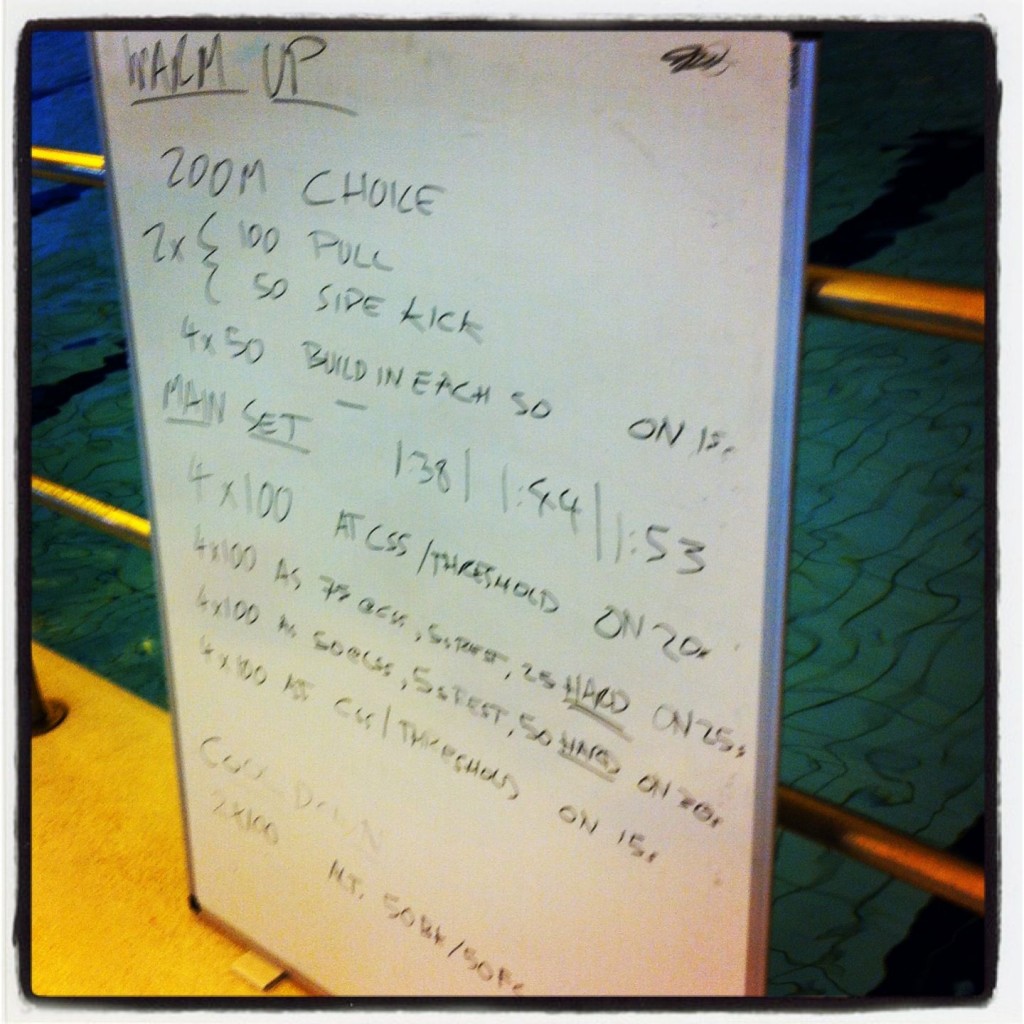 WARM UP
200M CHOICE
2x { 100 PULL
{ 50 SIDE KICK
4x50 BUILD IN EACH 50 ON 15s
MAIN SET 1:38 | 1:44 | 1:53
4x100 AT CSS/THRESHOLD ON 20s
4x100 AS 75@CSS, 5s REST, 25 HARD ON 25s
4x100 AS 50@CSS, 5s REST, 50 HARD ON 20s
4x100 AT CSS/THRESHOLD ON 15s
COOL DOWN
2x100 ALT. 50BK/50Fc